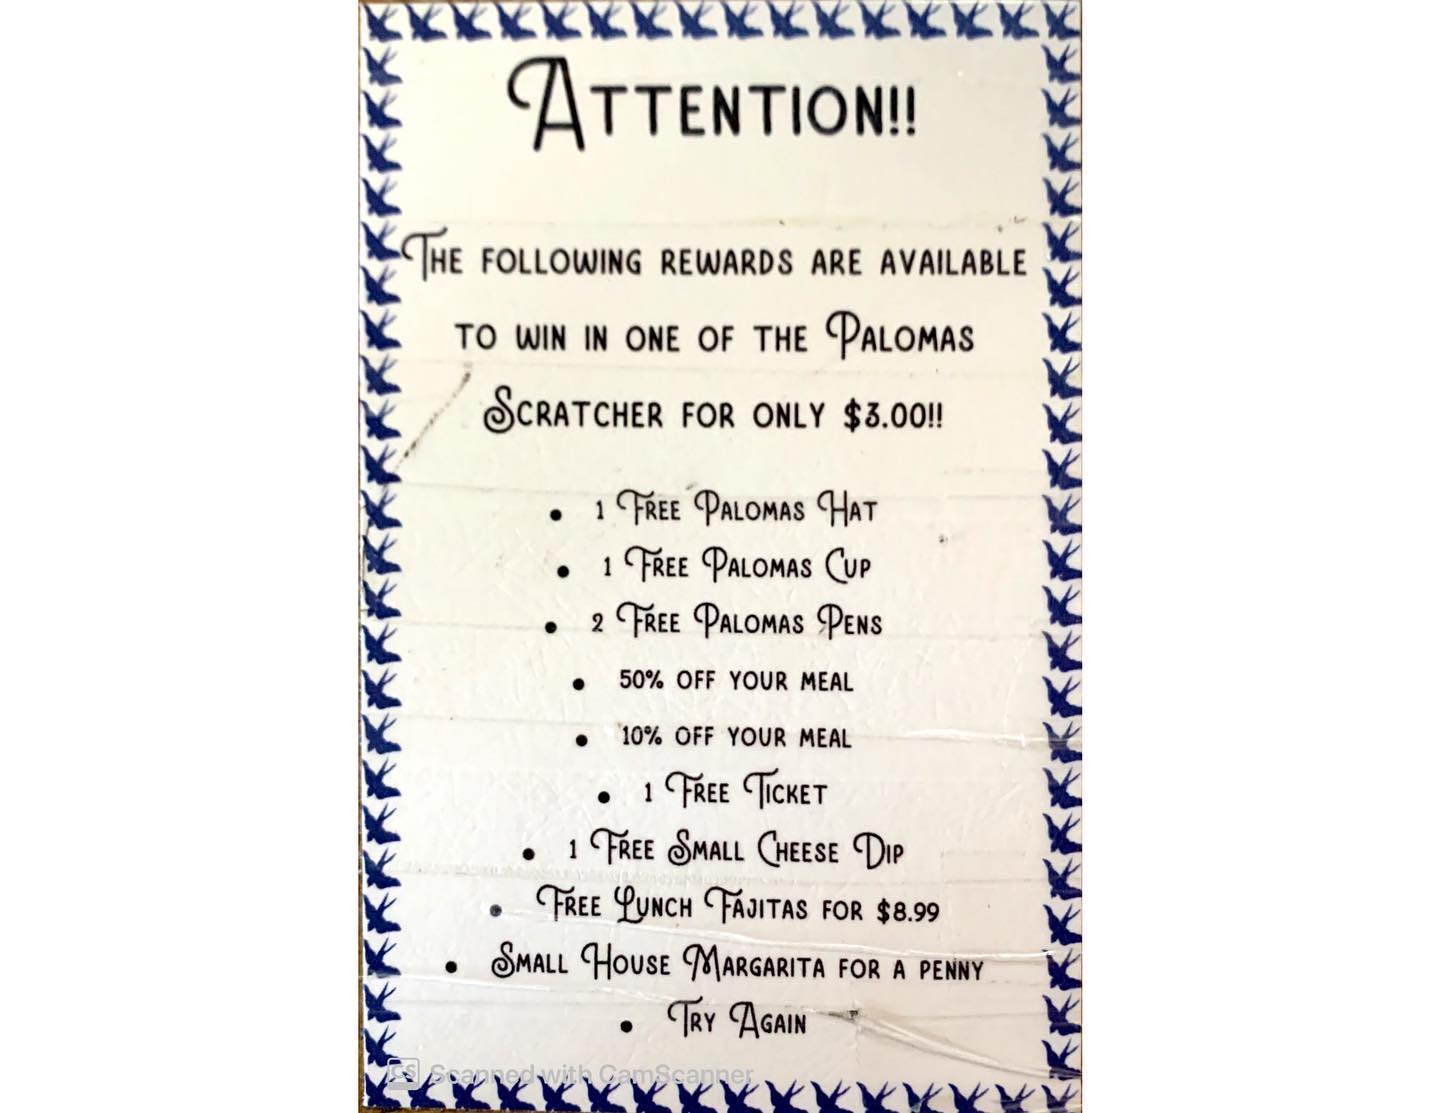 ATTENTION!!
THE FOLLOWING REWARDS ARE AVAILABLE
TO WIN IN ONE OF THE PALOMAS
SCRATCHER FOR ONLY $3.00!!
• 1 FREE PALOMAS HAT
• 1 FREE PALOMAS CUP
• 2 FREE PALOMAS PENS
• 50% OFF YOUR MEAL
• 10% OFF YOUR MEAL
• 1 FREE TICKET
• 1 FREE SMALL CHEESE DIP
• FREE LUNCH FAJITAS FOR $8.99
• SMALL HOUSE MARGARITA FOR A PENNY
• TRY AGAIN
CS Scanned with CamScanner